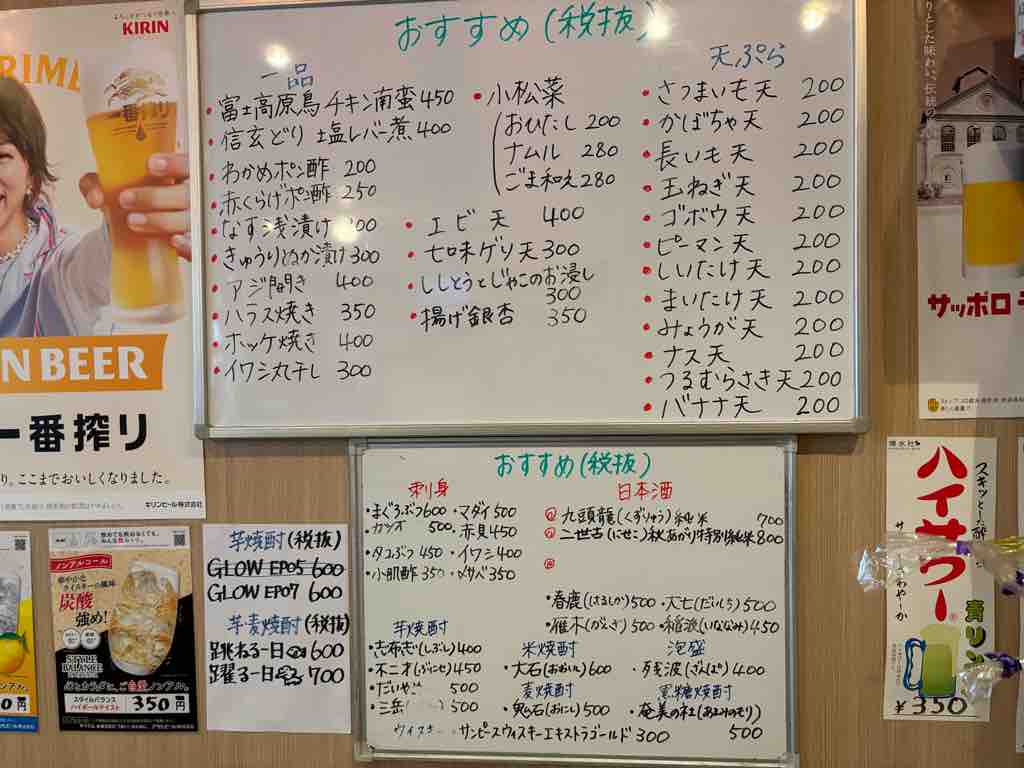 KIRIN
一番搾り
N BEER
一番搾り
り。ここまでおいしくなりました。
キリンビール株式会社
おすすめ(税抜)
一品
・富士高原鳥チキン南蛮 450
信玄どり 塩レバー煮 400
わかめポン酢 200
赤くらげポン酢 250
なす浅漬け
きゅうりぬか漬け 300
アジ開き 400
ハラス焼き 350
ホッケ焼き 400
イワシ丸干し 300
・小松菜
おひたし 200
ナムル 280
ごま和え 280
・エビ天 400
・七味ゲソ天 300
・ししとうとじゃこのお浸し
300
・揚げ銀杏 350
天ぷら
・さつまいも天 200
・かぼちゃ天 200
・長いも天 200
・玉ねぎ天 200
・ゴボウ天 200
・ピーマン天 200
・しいたけ天 200
・まいたけ天 200
・みょうが天 200
・ナス天 200
・つるむらさき天 200
・バナナ天 200
おすすめ(税抜)
刺身
・まぐろぶつ 600 ・マダイ 500
カツオ 500 ・赤貝 450
・タコぶつ 450 ・イワシ 400
・小肌酢 350 ・〆サバ 350
日本酒
九頭龍(くずりゅう)純米 700
二世古(にせこ)秋あがり特別純米 800
・春鹿(はるしか) 500 ・大七(だいしち) 500
・雁木(がんぎ) 500 ・稲波(いななみ) 450
芋焼酎
・志布志(しぶし) 400
・不二才(ぶにせ) 450
・だいやめ 500
・三岳 500
米焼酎
・大石(おおいし) 600
麦焼酎
・兼石(おにし) 500
泡盛
・残波(ざんぱ) 400
黒糖焼酎
・奄美の杜(あまみのもり)
500
ウィスキー ・サンピースウィスキーエキストラゴールド 300
芋焼酎(税抜)
GLOW EP05 600
GLOW EP07 600
芋麦焼酎(税抜)
跳ねる一日 600
躍る一日 700
ノンアルコール
炭酸
強め!
STYLE
BALANCE
スタイルバランス
ハイボールテイスト
350円
サッポロ
博水社
ハイサワー
スキッとした酔
青リン
¥350